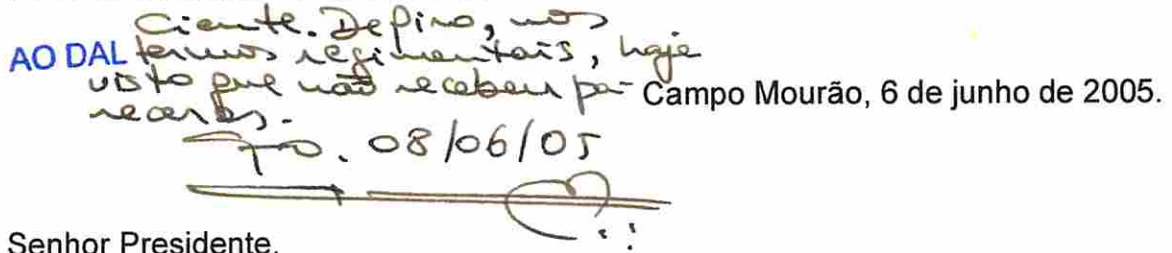 Ciente. Defiro, nos
AO DAL termos regimentais, haja
visto que não recebeu pa-
receres.
Campo Mourão, 6 de junho de 2005.
08/06/05
Senhor Presidente,